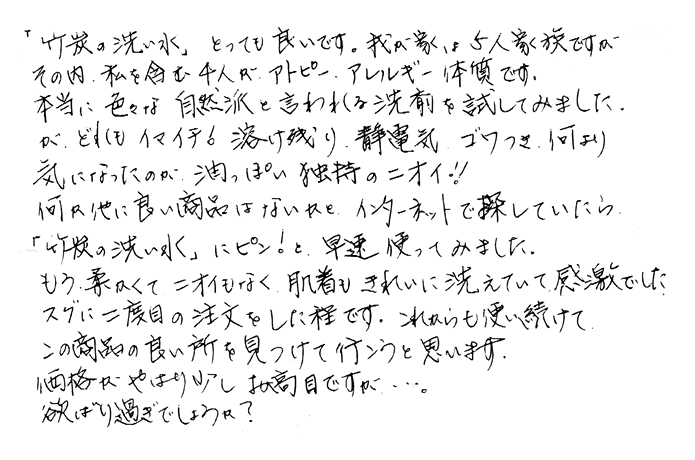 「竹炭の洗い水」とっても良いです。我が家は5人家族ですが
その内、私を含む4人が、アトピー、アレルギー体質です。
本当に色々な自然派と言われる洗剤を試してみました。
が、どれもイマイチ!溶け残り、静電気、ゴワつき、何より
気になったのが、油っぽい独特のニオイ!!
何か他に良い商品はないかと、インターネットで探していたら
「竹炭の洗い水」にピン!と、早速使ってみました。
もう、柔かくてニオイもなく、肌着もきれいに洗えていて、感激でした
スグに二度目の注文をした程です。これからも使い続けて
この商品の良い所を見つけて行こうと思います。
価格がやはり少しお高目ですが…。
欲ばり過ぎでしょうか?